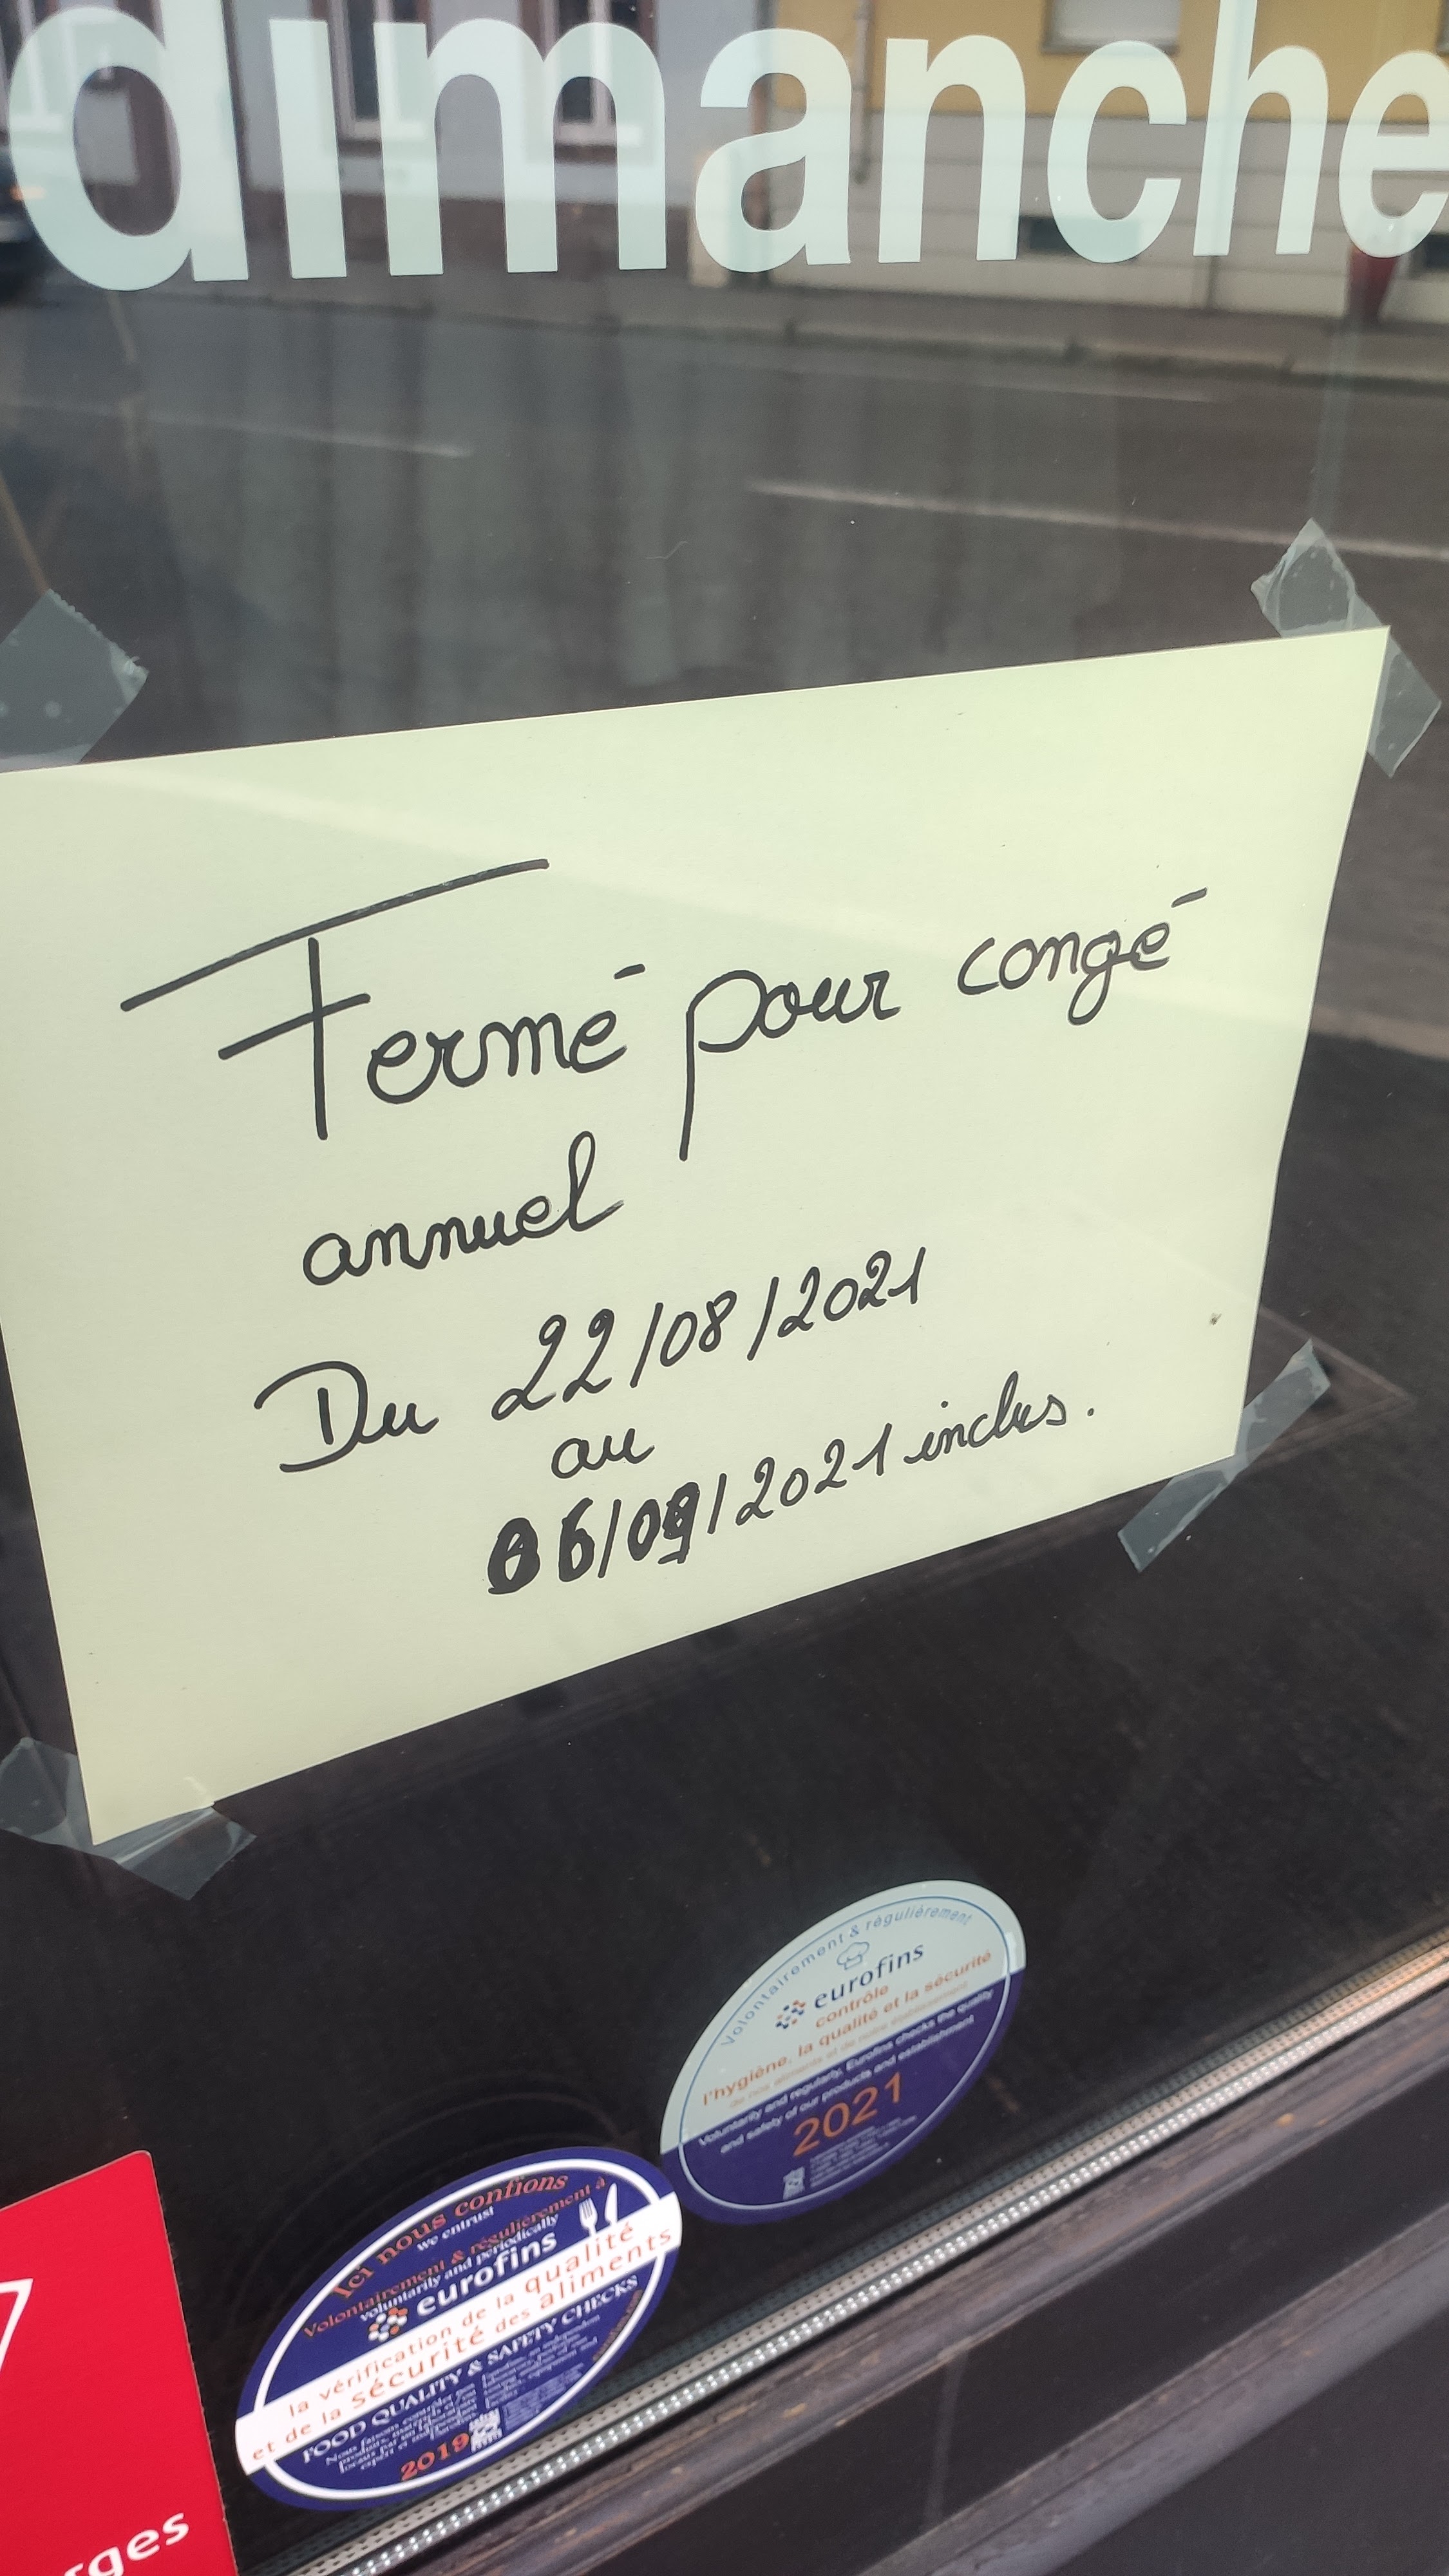 dimanche
Fermé pour congé
annuel
Du 22/08/2021
au
06/09/2021 inclus.
Volontairement & régulièrement
eurofins
contrôle
l'hygiène, la qualité et la sécurité
de nos aliments et de notre établissement
Voluntarily and regularly, Eurofins checks the quality
and safety of our products and establishment
2021
Ici nous confions
we entrust
Volontairement & régulièrement à
voluntarily and periodically
eurofins
la vérification de la qualité
et de la sécurité des aliments
FOOD QUALITY & SAFETY CHECKS
2019